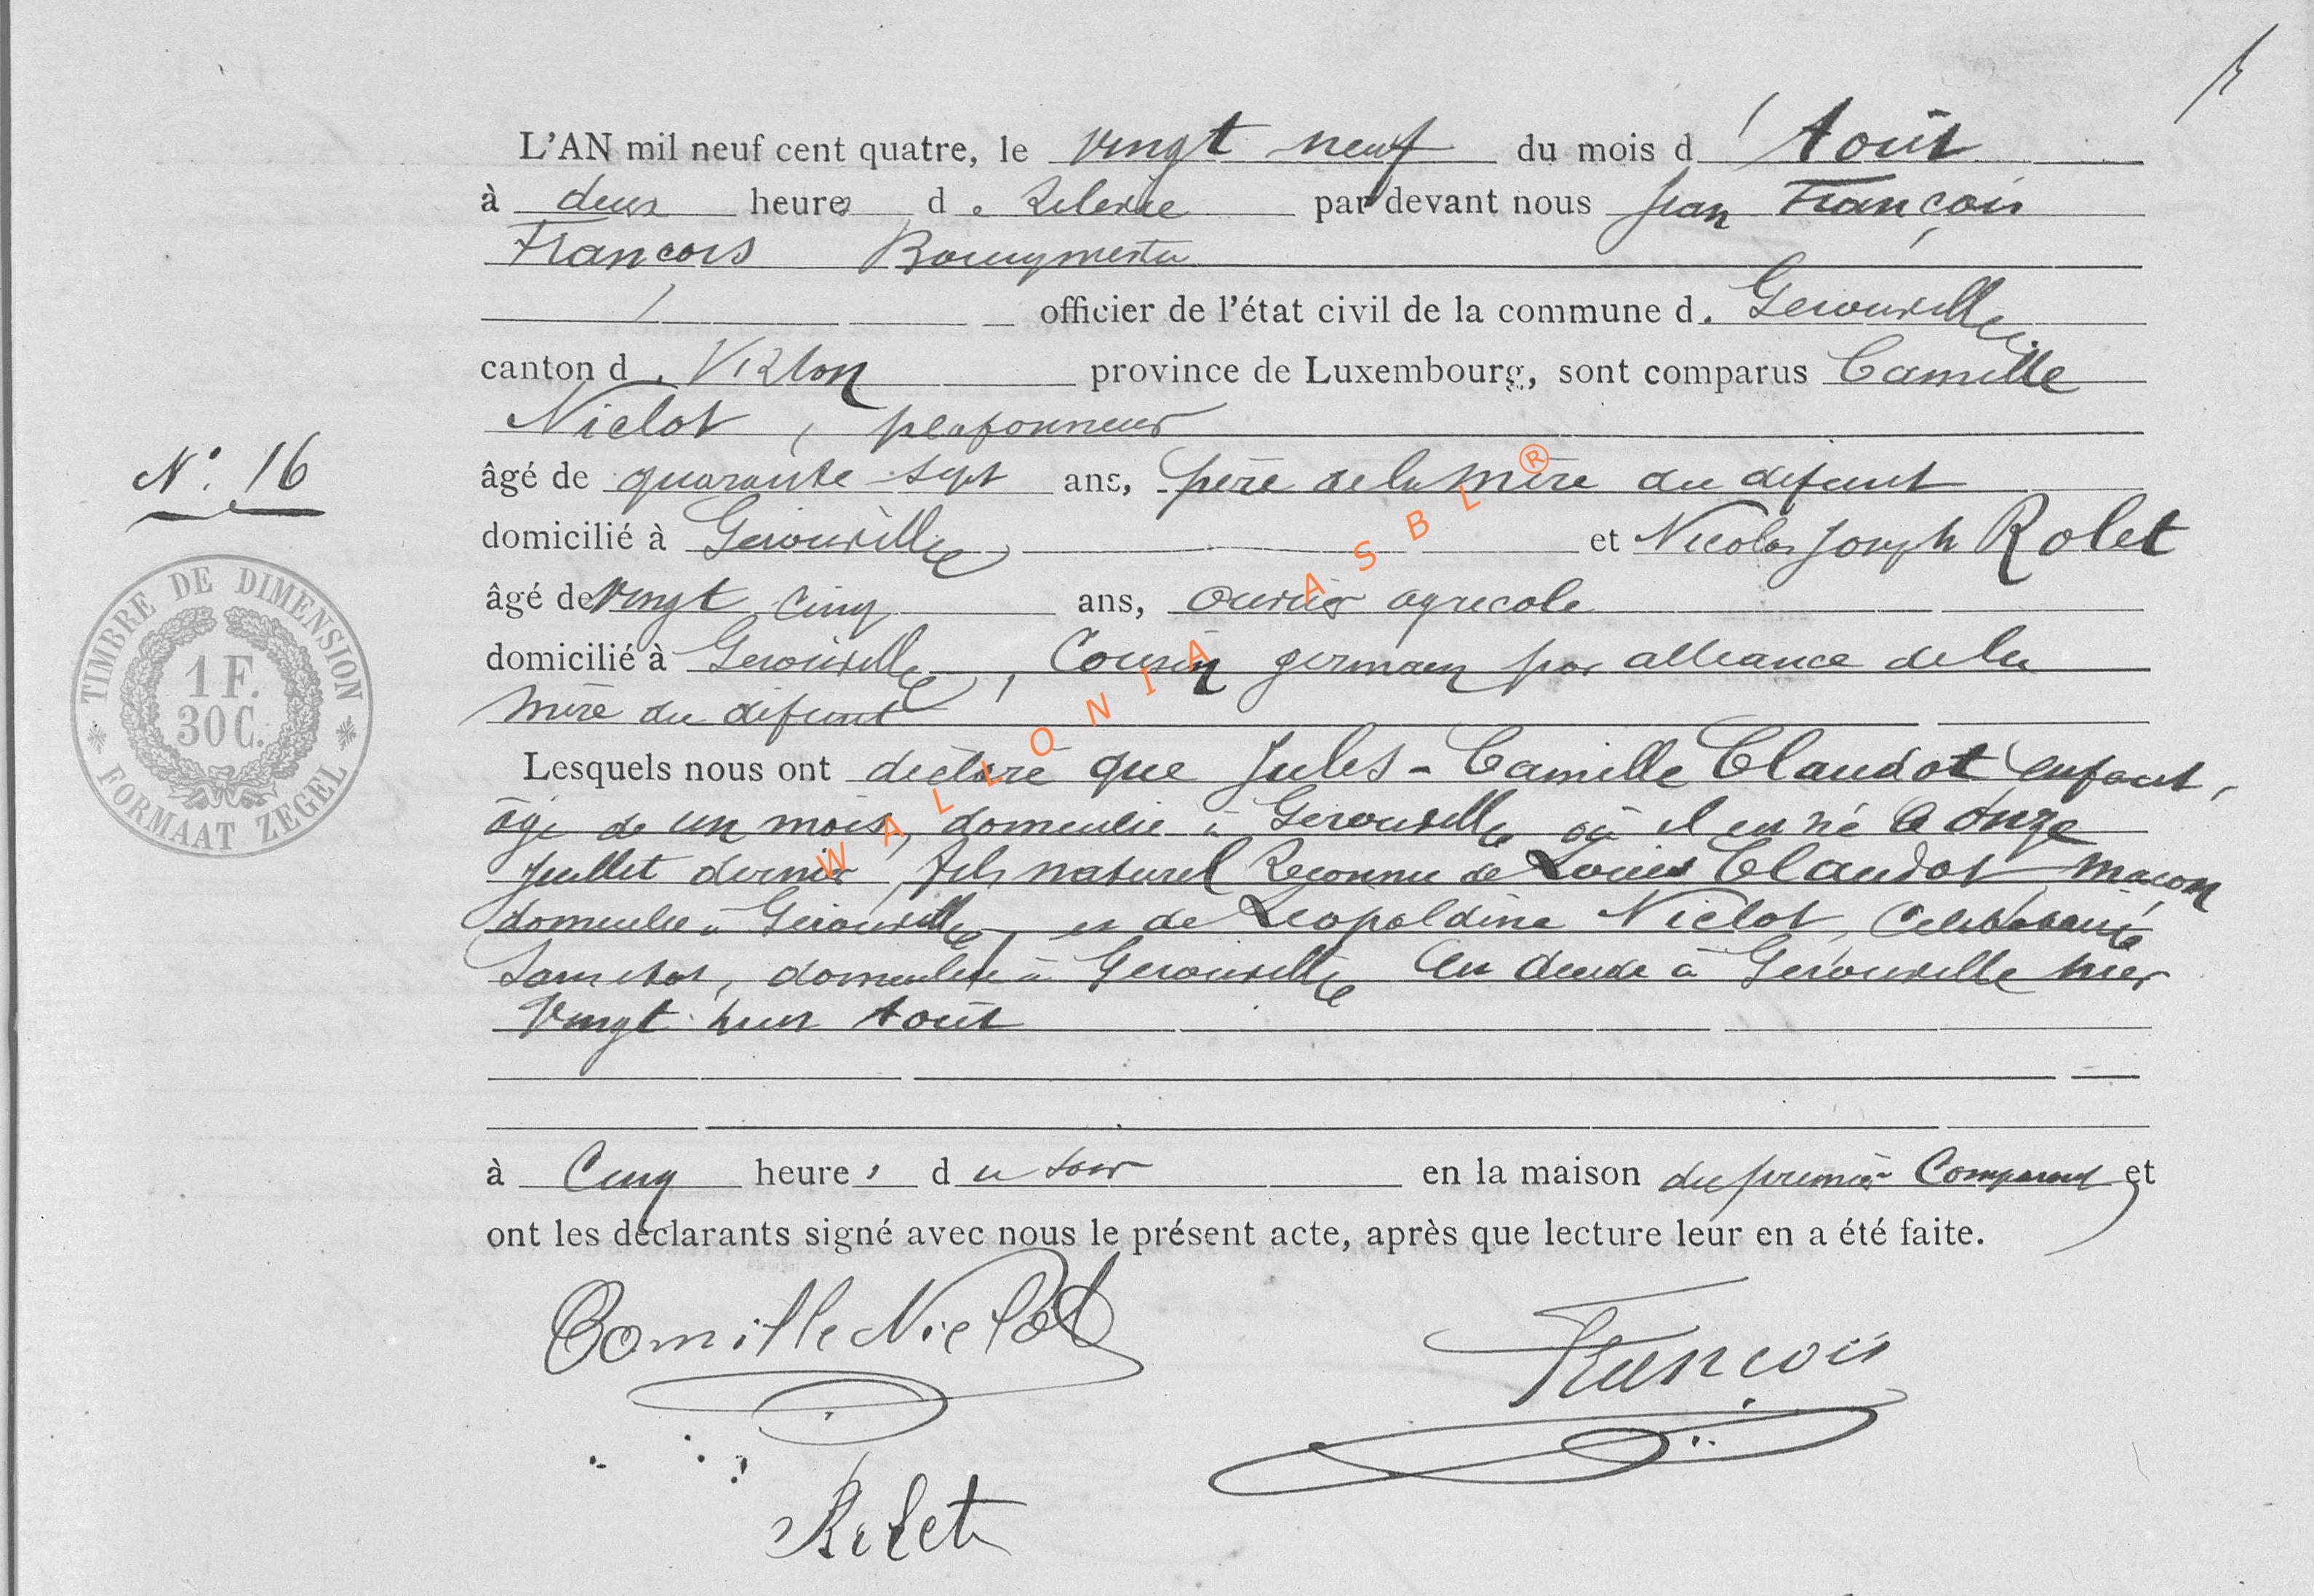 L'AN mil neuf cent quatre, le vingt neuf du mois d'Août
à deux heures de Relevée par devant nous Jean François
François Bourgmestre
officier de l'état civil de la commune d. Gerouville
canton d. Virton province de Luxembourg, sont comparus Camille
Niclot, plafonneur
N° 16
âgé de quarante sept ans, père de la mère du défunt
domicilié à Gerouville et Nicolas Joseph Rolet
âgé de vingt cinq ans, ouvrier agricole
domicilié à Gerouville, Cousin germain par alliance de la
mère du défunt
Lesquels nous ont déclaré que Jules-Camille Claudot enfant,
âgé de un mois, domicilié à Gerouville où il est né le onze
Juillet dernier, fils naturel Reconnu de Louis Claudot maçon
domicilié à Gerouville, et de Léopoldine Niclot, Célibataire
Sans état, domiciliée à Gerouville est décédé à Gerouville hier
Vingt huit Août
à Cinq heures du soir en la maison du premier Comparant et
ont les déclarants signé avec nous le présent acte, après que lecture leur en a été faite.
Camille Niclot
François
Rolet
TIMBRE DE DIMENSION
1 F.
30 C.
FORMAAT ZEGEL
WALLONIA ASBL ®